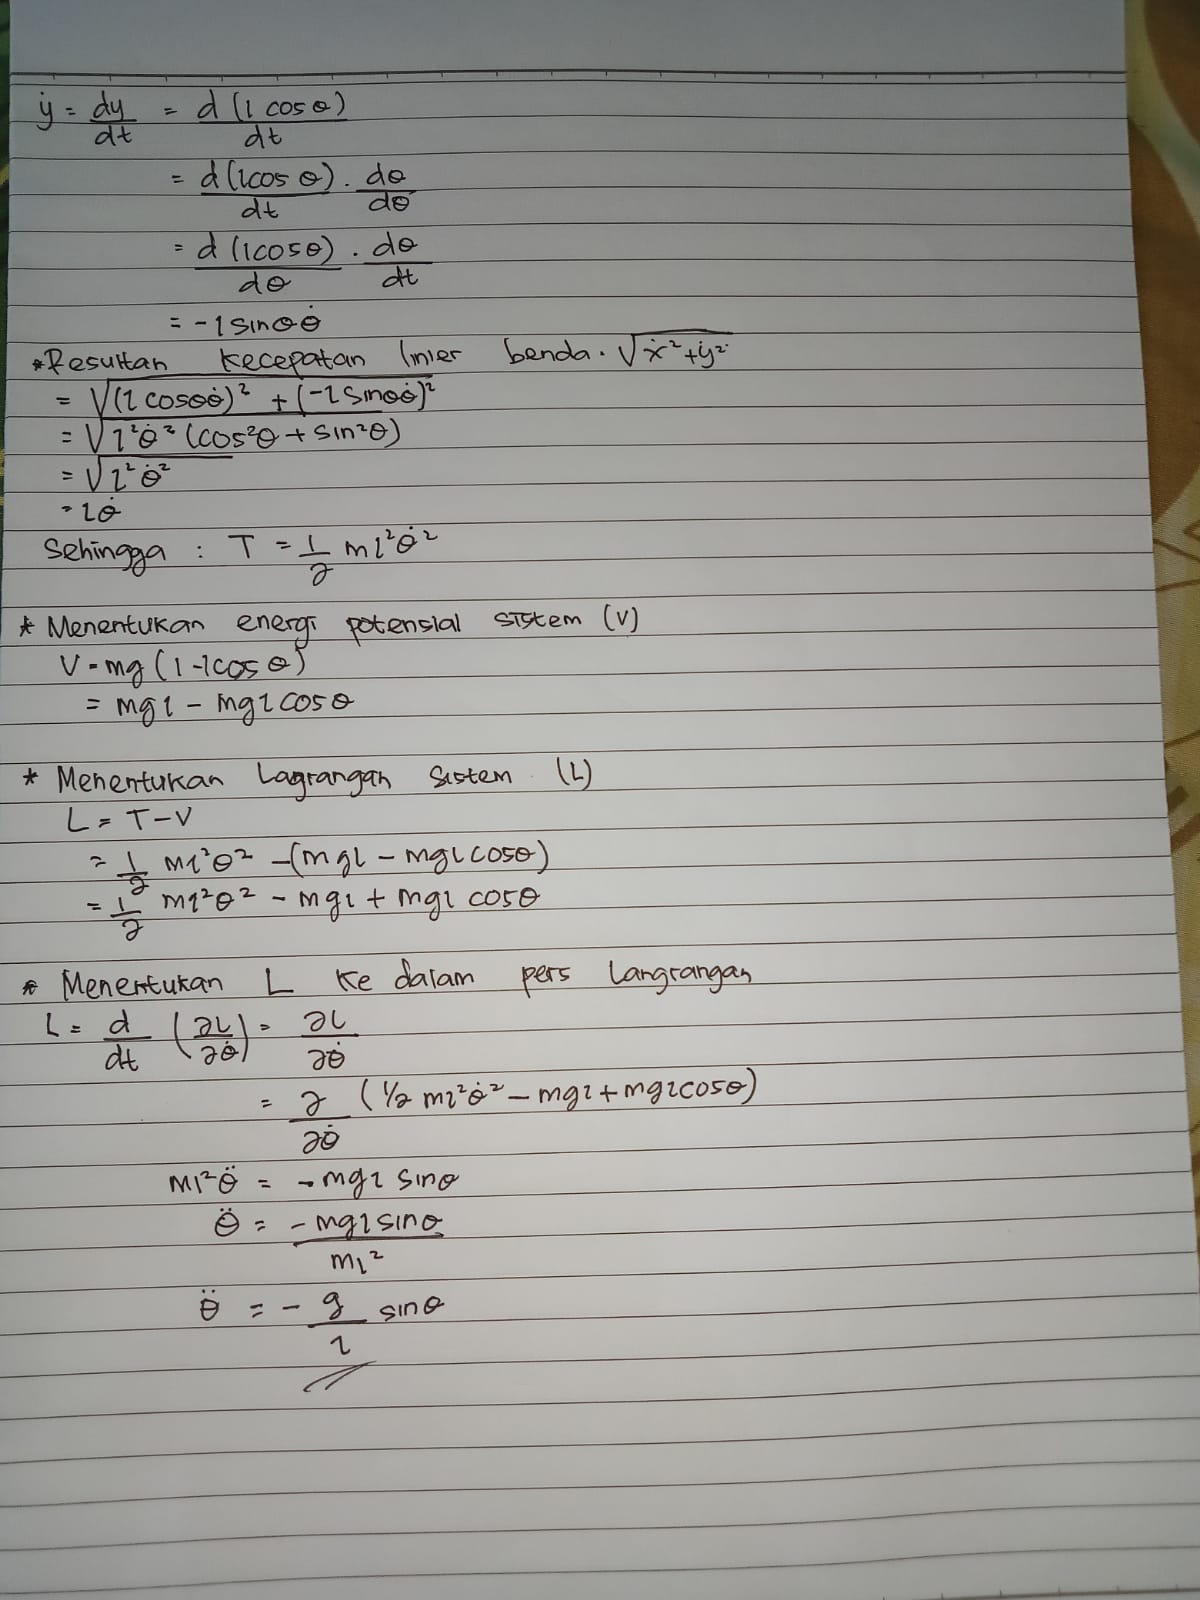 ẏ = dy/dt = d(l cos θ)/dt
= d(l cos θ)/dt . dθ/dθ
= d(l cos θ)/dθ . dθ/dt
= -l sin θ θ̇
*Resultan kecepatan linier benda. √ẋ²+ẏ²
= √(l cos θ θ̇)² + (-l sin θ θ̇)²
= √l²θ̇² (cos²θ + sin²θ)
= √l² θ̇²
= lθ̇
Sehingga : T = 1/2 ml²θ̇²
* Menentukan energi potensial sistem (V)
V = mg (l - l cos θ)
= mgl - mgl cos θ
* Menentukan Lagrangan Sistem (L)
L = T - V
= 1/2 ml²θ² - (mgl - mgl cos θ)
= 1/2 ml²θ² - mgl + mgl cos θ
* Menentukan L ke dalam pers Langrangan
L = d/dt (∂L/∂θ̇) = ∂L/∂θ̇
= ∂/∂θ̇ (1/2 ml²θ̇² - mgl + mgl cos θ)
ml²θ̈ = - mgl sin θ
θ̈ = - mgl sin θ/ml²
θ̈ = - g/l sin θ